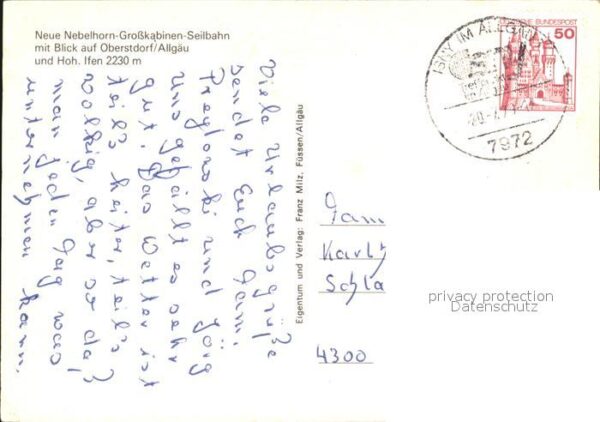 Neue Nebelhorn-Großkabinen-Seilbahn
mit Blick auf Oberstdorf/Allgäu
und Hoh. Ifen 2230 m
Viele Urlaubsgrüße
sendet Euch Fam.
und Jörg
Uns gefällt es sehr
gut. Das Wetter ist
teils heiter, teils
wolkig, aber so daß
man jeden Tag was
unternehmen kann.
Eigentum und Verlag: Franz Milz, Füssen/Allgäu
ISNY IM ALLGÄU
7972
DEUTSCHE BUNDESPOST
50
Fam
Karlh
Schla
4300
privacy protection
Datenschutz